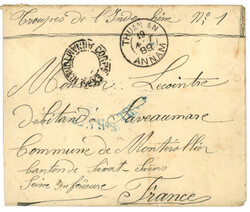 Troupes de l'Indo-Chine N° 1
THUAN-AN
19
89
ANNAM
CORPS EXPEDITIONNAIRE
Monsieur Lecointre
Débitant à Laveaumare
Commune de Montérollier
Canton de Saint Saëns
Seine Inférieure
France